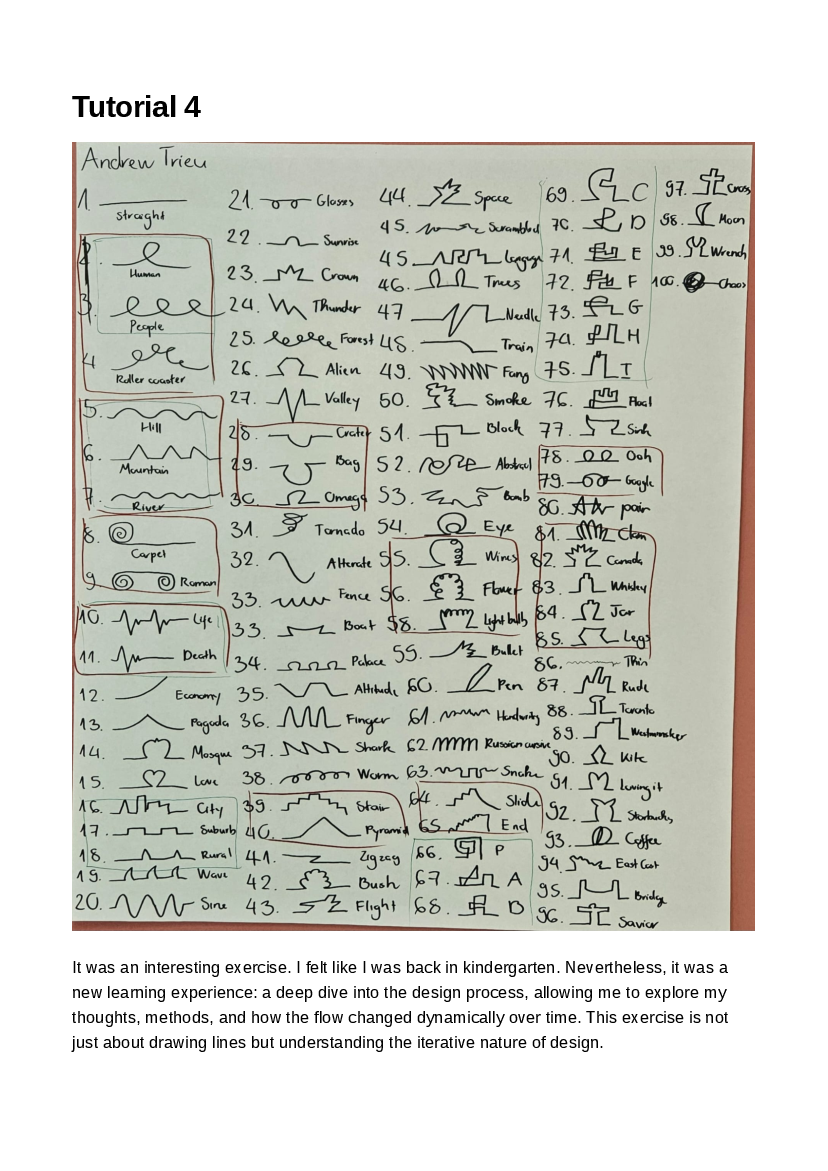 Tutorial 4
Andrew Trieu
1.
Straight
2.
Human
3.
People
4
Roller coaster
5.
Hill
6.
Mountain
7.
River
8.
Carpet
9. Roman
10. Life
11. Death
12. Economy
13. Pagoda
14. Mosque
15. Love
16. City
17. Suburb
18. Rural
19. Wave
20. Sine
21. Glasses
22. Sunrise
23. Crown
24. Thunder
25. Forest
26. Alien
27. Valley
28. Crater
29. Bag
30. Omega
31. Tornado
32. Alterate
33. Fence
33. Boat
34. Palace
35. Altitude
36. Finger
37. Shark
38. Worm
39. Stair
40. Pyramid
41. Zigzag
42. Bush
43. Flight
44. Space
45. Scrambled
45
46. Trees
47 Needle
48. Train
49. Fang
50. Smoke
51. Block
52. Abstract
53. Bomb
54. Eye
55. Wires
56. Flower
58. Light bulb
59. Bullet
60. Pen
61.
62. Russian cursive
63. Snake
64. Slide
65 End
66. P
67. A
68. B
69. C
70. D
71. E
72. F
73. G
74. H
75. I
76. Float
77. Sink
78. Ooh
79. Google
80. pair
81. Clam
82. Canada
83. Whiskey
84. Jar
85. Legs
86. Thin
87. Rude
88. Toronto
89. Westminster
90. Kite
91. Loving it
92. Starbucks
93. Coffee
94. East Cost
95. Bridge
96. Savior
97. Cross
98. Moon
99. Wrench
100. Chaos
It was an interesting exercise. I felt like I was back in kindergarten. Nevertheless, it was a
new learning experience: a deep dive into the design process, allowing me to explore my
thoughts, methods, and how the flow changed dynamically over time. This exercise is not
just about drawing lines but understanding the iterative nature of design.